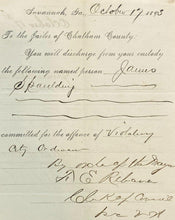 Savannah, Ga, October 17, 1893
To the Jailer of Chatham County.
You will discharge from your custody
the following named person James
Spaulding
committed for the offence of Violating
City Ordinance
By order of the Mayor
F. E. Rebarer
Clerk of Council